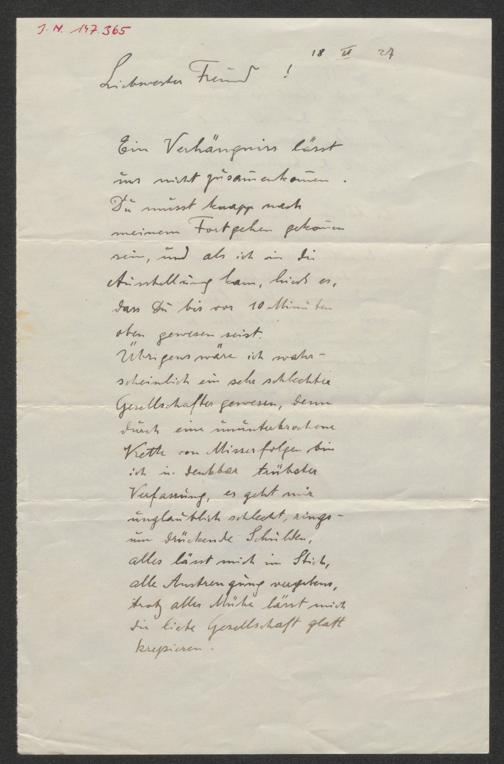 J. N. 147.365
18 VI 27
Liebwerter Freund !
Ein Verhängniss lässt
uns nicht zusam̅enkom̅en .
Du musst knapp nach
meinem Fortgehen gekom̅en
sein, und als ich in die
Ausstellung kam, hiess es,
dass Du bis vor 10 Minuten
oben gewesen seist.
Übrigens wäre ich wahr-
scheinlich ein sehr schlechter
Gesellschafter gewesen, denn
durch eine ununterbrochene
Kette von Misserfolgen bin
ich in denkbar trübster
Verfassung, es geht mir
unglaublich schlecht, rings-
um drückende Schulden,
alles lässt mich im Stich,
alle Anstrengung vergebens,
trotz aller Mühe lässt mich
die liebe Gesellschaft glatt
krepieren .